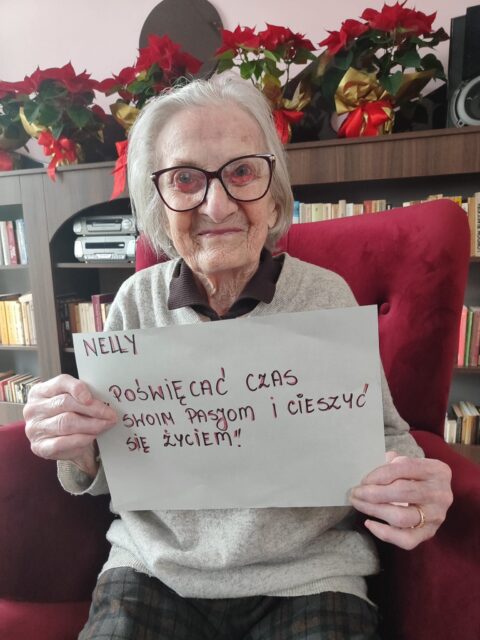 NELLY
„POŚWIĘCAĆ CZAS
SWOIM PASJOM I CIESZYĆ
SIĘ ŻYCIEM"